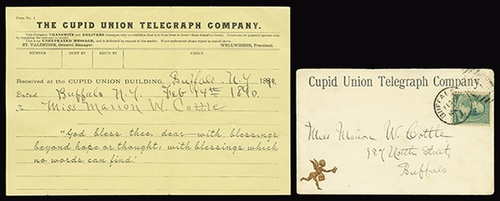 Form No. 1
THE CUPID UNION TELEGRAPH COMPANY.
ST. VALENTINE, General Manager. WELLWISHER, President.
NUMBER SENT BY REC'D BY CHECK
Received at the CUPID UNION BUILDING, Buffalo N.Y. 1890.
Dated Buffalo N.Y. Feb 14th 1890.
To Miss Marion W. Cottle
"God bless thee, dear — with blessings
beyond hope or thought, with blessings which
no words can find"
Cupid Union Telegraph Company.
BUFFALO
Miss Marion W Cottle
987 North Street,
Buffalo